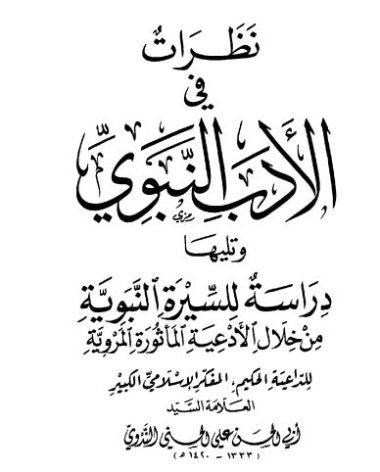 نَظَرَاتٌ
فِي
الأَدَبِ النَّبَوِيِّ
وتليها
دِرَاسَةٌ لِلسِّيْرَةِ النَّبَوِيَّةِ
مِنْ خِلَالِ الأَدْعِيَةِ المَأْثُورَةِ المَرْوِيَّةِ
للداعية الحكيم، المفكر الإسلامي الكبير
العلّامة السَّيّد
أبي الحسن علي الحسني النَّدْوي
(١٣٣٣ - ١٤٢٠ هـ)